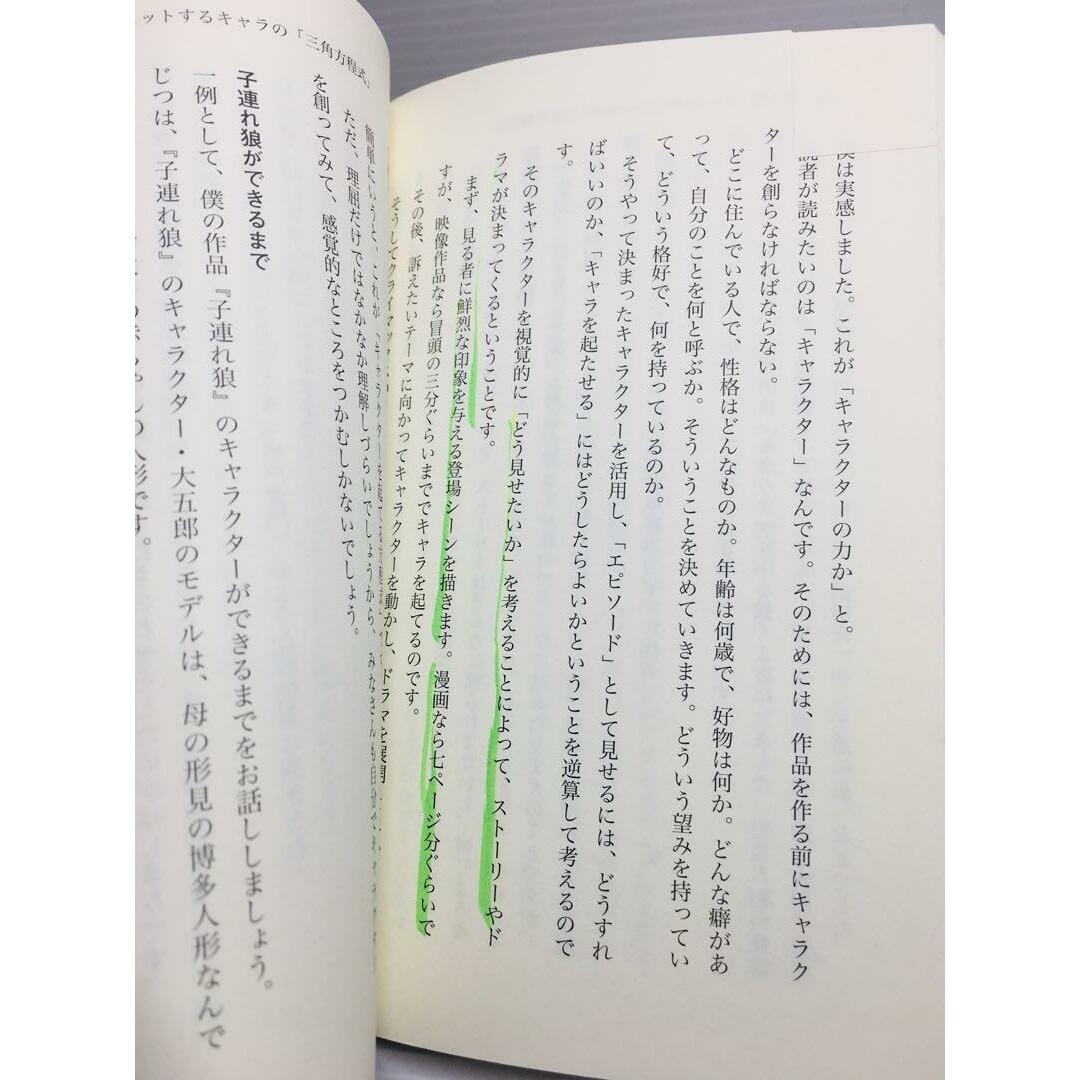 僕は実感しました。これが「キャラクターの力か」と。
読者が読みたいのは「キャラクター」なんです。そのためには、作品を作る前にキャラク
ターを創らなければならない。
どこに住んでいる人で、性格はどんなものか。年齢は何歳で、好物は何か。どんな癖があ
って、自分のことを何と呼ぶか。そういうことを決めていきます。どういう望みを持ってい
て、どういう格好で、何を持っているのか。
そうやって決まったキャラクターを活用し、「エピソード」として見せるには、どうすれ
ばいいのか、「キャラを起たせる」にはどうしたらよいかということを逆算して考えるので
す。
そのキャラクターを視覚的に「どう見せたいか」を考えることによって、ストーリーやド
ラマが決まってくるということです。
まず、見る者に鮮烈な印象を与える登場シーンを描きます。漫画なら七ページ分ぐらいで
すが、映像作品なら冒頭の三分ぐらいまででキャラを起てるのです。
その後、訴えたいテーマに向かってキャラクターを動かし、ドラマを展開
そうしてクライマックス
簡単にいうと、これが「キャラクターを起てる方程式」
ただ、理屈だけではなかなか理解しづらいでしょうから、みなさんも自分で
を創ってみて、感覚的なところをつかむしかないでしょう。
子連れ狼ができるまで
一例として、僕の作品『子連れ狼』のキャラクターができるまでをお話ししましょう。
じつは、『子連れ狼』のキャラクター・大五郎のモデルは、母の形見の博多人形なんで
の人形です。
ットするキャラの「三角方程式」